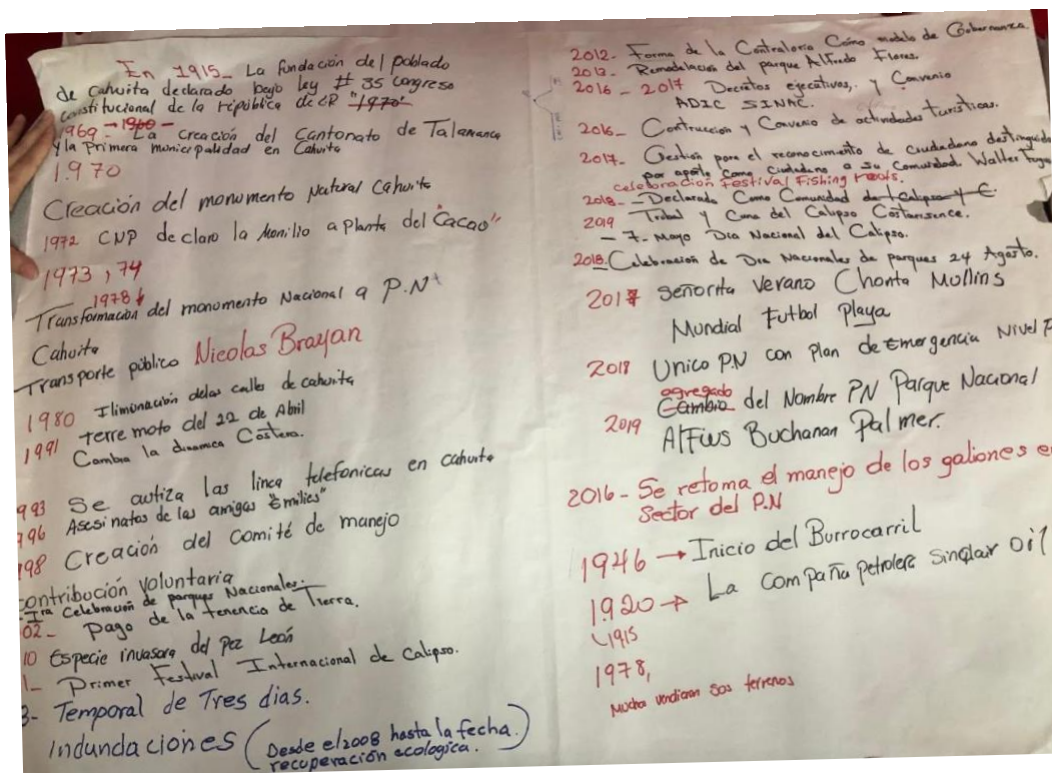 En 1915_ La fundación del poblado
de Cahuita declarado bajo ley # 35 congreso
Constitucional de la república de CR "1970"
1969 → 1960 - La creación del Cantonato de Talamanca
y la Primera municipalidad en Cahuita
1.970
Creación del monumento Natural Cahuita
1972 CNP declaro la Monilio a Planta del "Cacao"
1973, 74
1978
Transformación del monumento Nacional a P.N
Cahuita
Transporte público Nicolas Brayan
1980 Ilimunación delas calles de cahuita
1991 terremoto del 22 de Abril
Cambia la dinamica Costera.
993 Se autiza las linea telefonicas en cahuita
996 Asesinatos de las amigas "Emilies"
998 Creación del Comité de manejo
Contribución Voluntaria
- 1ra Celebración de parques Nacionales.
02- Pago de la tenencia de Tierra.
10 Especie invasora del Pez León
1- Primer Festival Internacional de Calipso.
3- Temporal de Tres dias.
Indundaciones (Desde el 2008 hasta la fecha.
recuperación ecologica.)
2012. Forma de la Contraloria Como modelo de Gobernanza.
2012. Remodelación del parque Alfredo Flores.
2016 - 2017 Decretos ejecutivos, y Convenio
ADIC SINAC.
2016- Contruccion y Convenio de actividades turísticas.
2017- Gestión para el reconocimiento de ciudadano destinguido
por aporte Como Ciudadano a su Comunidad. Walter
celebración festival Fishing roots.
2018- - Declarada Como Comunidad de Calipso y C.
2019 Tribal y Cuna del Calipso Costarisence.
- 7. Mayo Dia Nacional del Calipso.
2018. Celebración de Dia Nacionales de parques 24 Agosto.
2017 Señorita Verano Chonta Mullins
Mundial Futbol Playa
2018 Unico P.N con Plan de Emergencia Nivel
agregado
Cambio del Nombre PN Parque Nacional
2019 Alfius Buchanan Palmer.
2016- Se retoma el manejo de los galiones e
Sector del P.N
1946 → Inicio del Burrocarril
1.920 → La Compañia petrolera Sinclair Oil
1915
1978,
Mucha vendieron sos terrenos